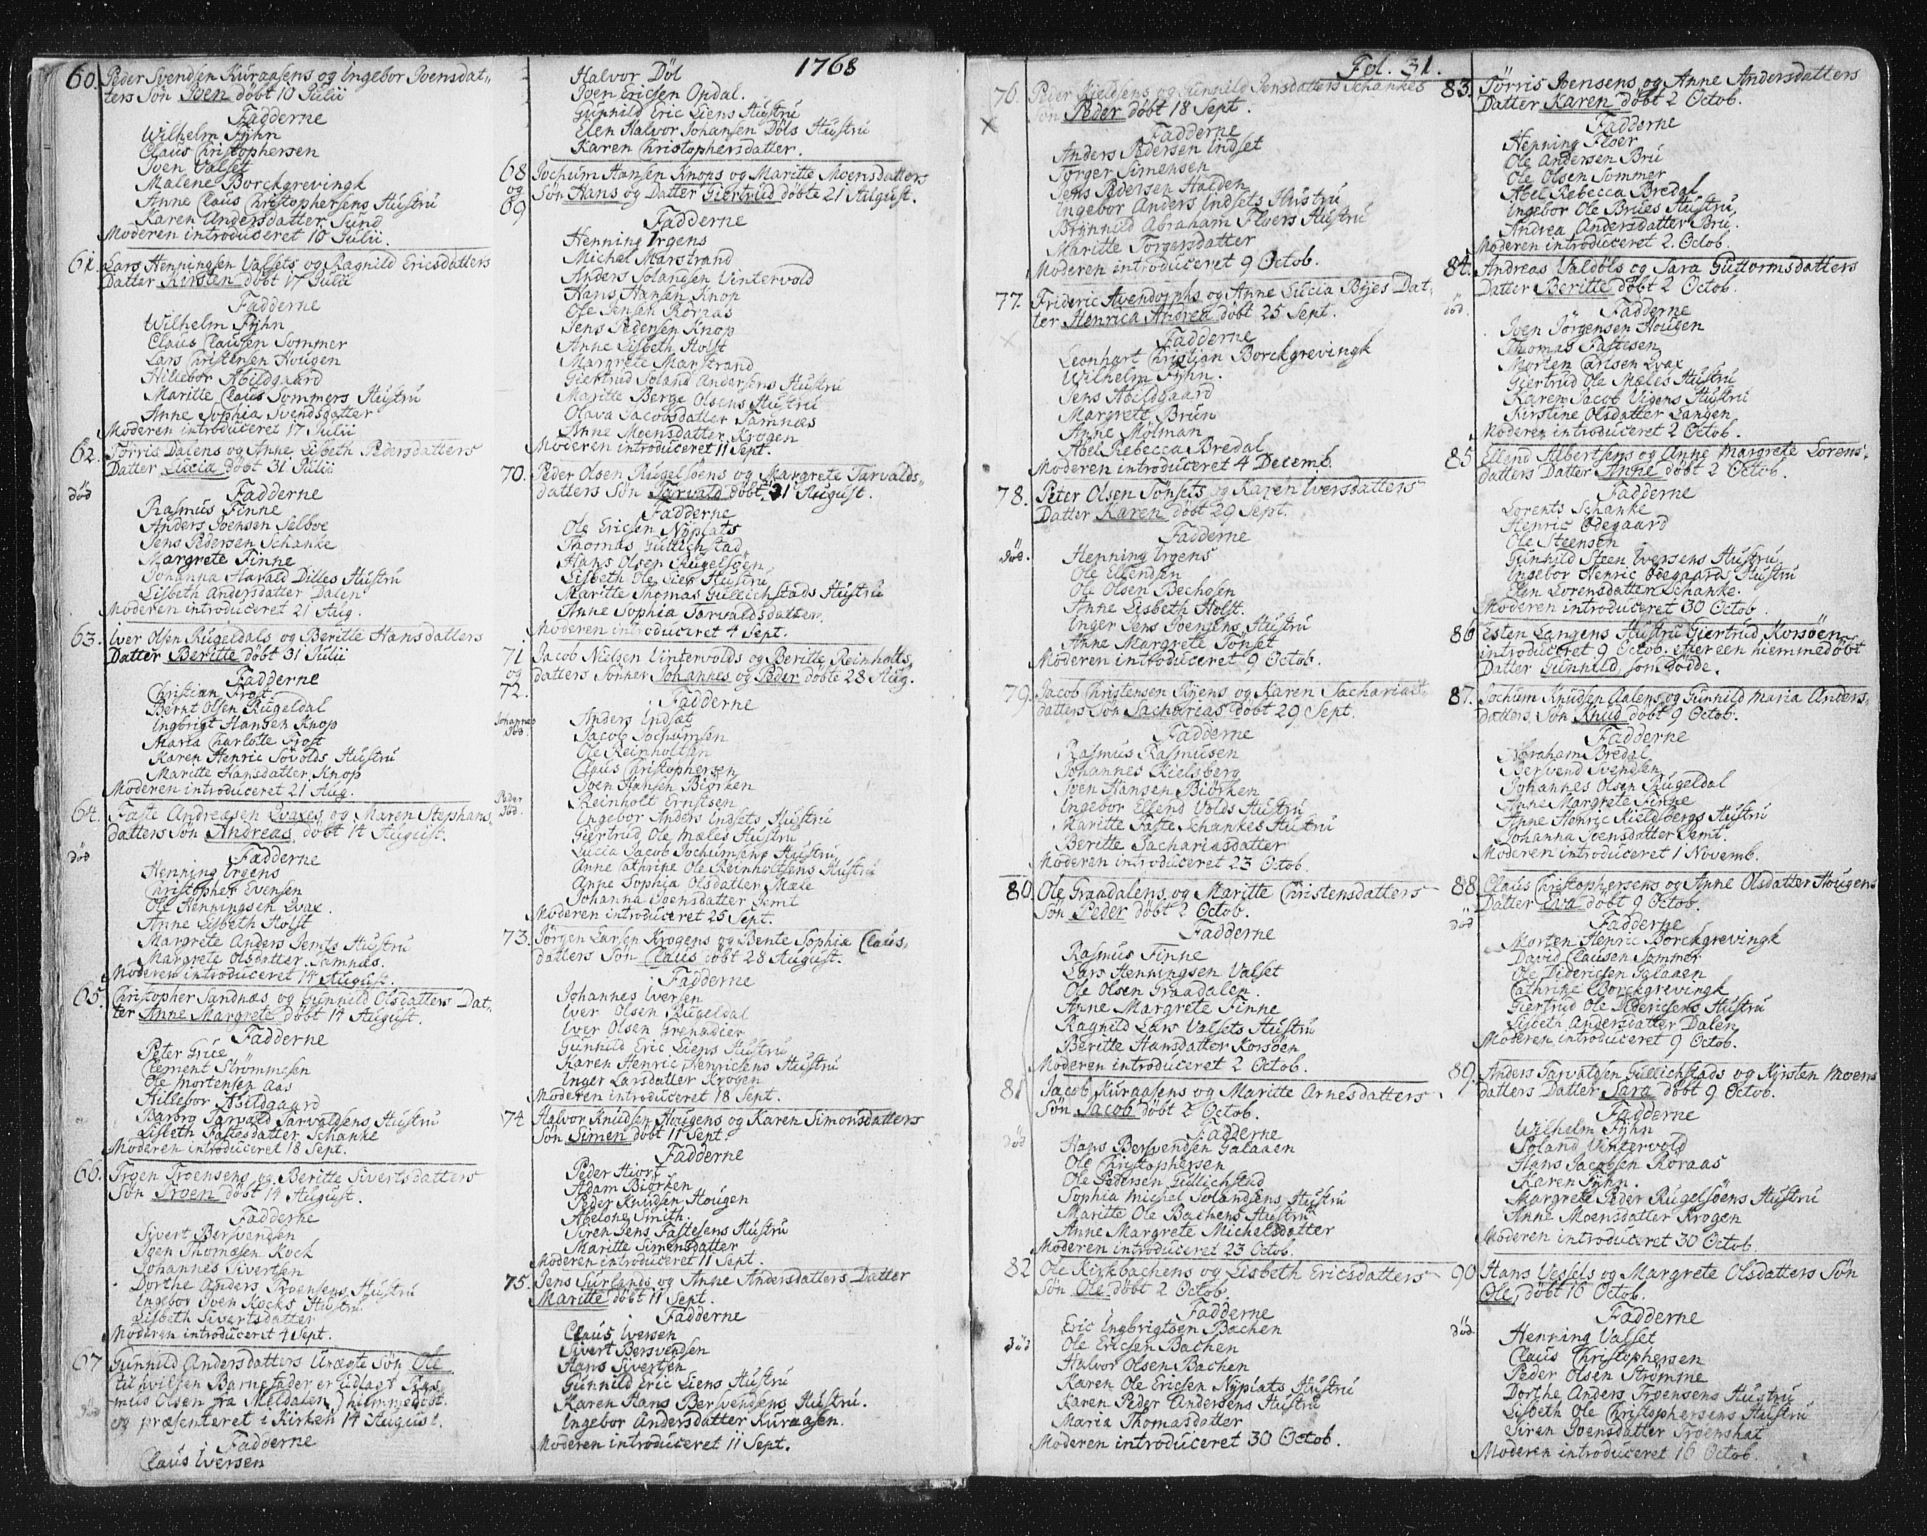 1768
Fol. 31.
60. Peder Svendsen Kuraasens og Ingebor Joensdat-
ters Søn Joen døbt 10 Julii
Fadderne
Wilhelm Fÿhn
Claus Christophersen
Iven Valset
Malene Borckgrevingk
Anne Claus Christophersens Hustrú
Karen Andersdatter Sund
Moderen introduceret 10 Julii.
61. Lars Henningsen Valsets og Ragnild Ericsdatters
Datter Kirsten døbt 17 Julii
Fadderne
Wilhelm Fÿhn
Claus Clausen Sommer
Lars Christensen Hougen
Hillebor Abildgaard
Maritte Claus Sommers Hustrú
Anne Sophia Svendsdatter
Moderen introduceret 17 Julii
62. Tørris Dalens og Anne Lisbeth Pedersdatters
Datter Lucia døbt 31 Julii
død
Fadderne
Rasmus Finne
Anders Joensen Selboe
Jens Pedersen Schanke
Margrete Finne
Johanna Harald Dilles Hustrú
Lisbeth Andersdatter Dalen
Moderen introduceret 21 Aug.
63. Iver Olsen Rugeldals og Beritte Hansdatters
Datter Beritte døbt 31 Julii
Fadderne
Christian Frost
Bernt Olsen Rugeldal
Ingbrigt Hansen Knop
Maria Charlotte Frost
Karen Henric Søvolds Hustrú
Maritte Hansdatter Knop
Moderen introduceret 21 Aug.
64. Faste Andreasen Qvaxes og Maren Stephans
datters Søn Andreas døbt 14 August.
død
Fadderne
Henning Irgens
Christopher Evensen
Ole Henningsen Qvax.
Anne Lisbeth Holst
Margrete Anders Jemts Hustrú
Margrete Olsdatter Tamnæs.
Moderen introduceret 14 August.
65. Christopher Sandnæs og Gunnild Olsdatters Dat-
ter Anne Margrete døbt 14 August.
Fadderne
Peter Grúe
Clement Strømmesen
Ole Mortensen Aas
Hillebor Abildgaard
Barbro Tarvald Tarvaldsens Hustrú
Lisbeth Fastesdatter Schanke
Moderen introduceret 18 Sept.
66. Troen Troensens og Beritte Sivertsdatters
Søn Troen døbt 14 August.
Fadderne
Sivert Bersvensen
Joen Thomæsen Kock
Johannes Sivertsen
Dorthe Anders Troensens Hustrú
Ingebor Joen Kocks Hustrú
Lisbeth Sivertsdatter
Moderen introduceret 4 Sept.
67. Gunnild Andersdatters Uægte Søn Ole
til hvilken Barnefader er udlagt Ras
mus Olsen fra Meldalen, hiemmedøbt
og præsenteret i Kirken 14 August.
død
Fadderne
Claus Iversen
Halvor Døl
Joen Ericsen Opdal.
Gunnild Eric Liens Hustrú
Elen Halvor Johansen Døls Hustrú
Karen Christophersdatter.
68
og
69
Jochum Hansen Knops og Maritte Moensdatters
Søn Hans og Datter Giertrud døbte 21 August.
Fadderne
Henning Irgens
Michel Marstrand
Anders Jolandsen Vintervold
Hans Hansen Knop
Ole Jensen Koraas
Jens Pedersen Knop
Anne Lisbeth Holst
Margrete Marstrand
Giertrud Joland Andersens Hustrú
Maritte Berge Olsens Hustrú
Olava Jacobsdatter Tamnæs
Anne Moensdatter Krogen
Moderen introduceret 11 Sept.
70. Peder Olsen Rugelsøens og Margrete Tarvalds-
datters Søn Tarvald døbt 21 August.
Fadderne
Ole Ericsen Nyplats
Thomas Gullichstad
Hans Olsen Rugelsøen
Lisbeth Ole Lies Hustrú
Maritte Thomas Gullichstads Hustrú
Anne Sophia Tarvaldsdatter.
Moderen introduceret 4 Sept.
71
og
72.
Jacob Nielsen Vintervolds og Beritte Reinholts
datters Sønner Johannes og Peder døbte 28 Aug.
Johannes
død
Peder
død.
Fadderne
Anders Indset
Jacob Jochumsen
Ole Reinholtsen
Claus Christophersen
Joen Hansen Biørken
Reinholt Ernstsen
Ingebor Anders Indsets Hustrú
Giertrud Ole Mæles Hustrú
Lucia Jacob Jochumsens Hustrú
Anne Cathrine Ole Reinholtsens Hustrú
Anne Sophia Olsdatter Mæle
Johanna Joensdatter Jemt
Moderen introduceret 25 Sept.
73. Jørgen Larsen Krogens og Bente Sophia Claus
datters Søn Claus døbt 28 August.
Fadderne
Johannes Iversen
Iver Olsen Rugeldal
Iver Olsen Grenadier
Gunnild Eric Liens Hustrú
Karen Henric Henricsens Hustrú
Inger Larsdatter Krogen
Moderen introduceret 18 Sept.
74 Halvor Knudsen Hougens og Karen Simonsdatters
Søn Simen døbt 11 Sept.
Fadderne
Peder Hiort
Adam Biørken
Peder Knudsen Hougen
Abelone Smith.
Siren Jens Fastesens Hustrú
Maritte Simensdatter
Moderen introduceret 11 Sept.
75. Jens Surlands og Anne Andersdatters Datter
Maritte døbt 11 Sept.
Fadderne
Claus Iversen
Sivert Bersvendsen
Hans Sivertsen
Gunnild Eric Liens Hustrú
Karen Hans Bersvendsens Hustrú.
Ingebor Andersdatter Kuraasen.
Moderen introduceret 11 Sept.
76. Peder Kieldsens og Gunnild Jensdatters Schankes
Søn Peder døbt 18 Sept.
Fadderne
Anders Pedersen Indset
Torger Simensen
Jens Pedersen Halden
Ingebor Anders Indsets Hustrú
Brønnild Abraham Floers Hustrú
Maritte Torgersdatter
Moderen introduceret 9 Octob.
77. Frideric Avendorphs og Anne Lucia Byes Dat-
ter Henrica Andrea døbt 25 Sept.
Fadderne
Leonhart Christian Borckgrevingk
Wilhelm Fÿhn.
Jens Abildgaard
Margrete Brun
Anne Mølman
Abel Rebecca Bredal
Moderen introduceret 4 Decemb.
78. Peter Olsen Tønsets og Karen Iversdatters
Datter Karen døbt 29 Sept.
død.
Fadderne
Henning Irgens
Ole Ellendsen
Ole Olsen Bechosen
Anne Lisbeth Holst.
Inger Jens Joensens Hustrú
Anne Margrete Tønset
Moderen introduceret 9 Octob.
79. Jacob Christensen Byens og Karen Sacharias-
datters Søn Sacharias døbt 29 Sept.
Fadderne
Rasmus Rasmusen
Johannes Kielsberg
Iven Hansen Biørken
Ingebor Ellend Volds Hustrú
Maritte Faste Schankes Hustrú
Beritte Sachariasdatter
Moderen introduceret 23 Octob.
80. Ole Graadalens og Maritte Christensdatters
Søn Peder døbt 2 Octob.
Fadderne
Rasmus Finne
Lars Henningsen Valset
Ole Olsen Graadalen.
Anne Margrete Finne
Ragnild Lars Valsets Hustrú
Beritte Hansdatter Korsøen
Moderen introduceret 2 Octob.
81 Jacob Kuraasens og Maritte Arnesdatters
Søn Jacob døbt 2 Octob.
død
Fadderne
Hans Bersvendsen Galaaen
Ole Christophersen
Ole Pedersen Gullichstad
Sophia Michel Jolandsens Hustrú
Maritte Ole Bachens Hustrú
Anne Margrete Michelsdatter
Moderen introduceret 23 Octob.
82 Ole Kirkbachens og Lisbeth Ericsdatters
Søn Ole døbt 2 Octob.
død
Fadderne
Eric Ingbrigtsen Bachen
Ole Ericsen Bachen
Halvor Olsen Bachen
Karen Ole Ericsen Nyplats Hustrú
Karen Peder Andersens Hustrú
Maria Thomasdatter
Moderen introduceret 30 Octob.
83. Tørris Joensens og Anne Andersdatters
Datter Karen døbt 2 Octob.
Fadderne
Henning Floer
Ole Andersen Bru
Ole Olsen Sommer
Abel Rebecca Bredal
Ingebor Ole Brues Hustrú
Andrea Andersdatter Bru.
Moderen introduceret 2. Octob.
84. Andreas Valdøls og Sara Guttormsdatters
Datter Beritte døbt 2 Octob.
død.
Fadderne
Iven Jørgensen Hougen
Thomas Fastesen
Morten Carlsen Qvax
Giertrud Ole Mæles Hustrú
Karen Jacob Vigens Hustrú
Kirstine Olsdatter Langen
Moderen introduceret 2 Octob.
85. Ellend Albertsens og Anne Margrete Lorens-
datters Datter Anne døbt 2 Octob
Fadderne
Lorents Schanke
Henric Ødegaard
Ole Steensen
Gunhild Steen Iversens Hustrú
Ingebor Henric Ødegaards Hustrú
Elen Lorensdatter Schanke.
Moderen introduceret 30 Octob.
86 Esten Langens Hustrú Giertrud Korsøen
introduceret 9 Octob. efter een hiemmedøbt
Datter Gunnild som døde.
87. Jochum Knudsen Aalens og Gunnild Maria Anders-
datters Søn Knud døbt 9 Octob.
Fadderne
Abraham Bredal
Bersvend Svendsen
Johannes Olsen Rugeldal
Anne Margrete Finne
Anne Henric Kieldsbergs Hustrú
Johanna Joensdatter Jemt.
Moderen introduceret 1 Novemb.
88. Claus Christophersens og Anne Olsdatter Hougens
Datter Eva døbt 9 Octob.
død
Fadderne
Morten Henric Borckgrevingk
David Clausen Sommer
Ole Idericsen Galaaen
Cathrine Borckgrevingk
Giertrud Ole Idericsens Hustrú
Lisbeth Andersdatter Dalen
Moderen introduceret 9 Octob.
89. Anders Tarvaldsen Gullichstads og Kirsten Moens
datters Datter Sara døbt 9 Octob.
Fadderne
Wilhelm Fÿhn
Joland Vintervold
Hans Jacobsen Koraas
Karen Fÿhn.
Margrete Peder Rugelsøens Hustrú
Anne Moensdatter Krogen
Moderen introduceret 30 Octob.
90 Hans Vessels og Margrete Olsdatters Søn
Ole, døbt 16 Octob.
død
Fadderne
Henning Valset
Claus Christophersen
Peder Olsen Strømme
Dorthe Anders Troensens Hustrú
Lisbeth Ole Christophersens Hustrú
Siren Joensdatter Troenshat
Moderen introduceret 16 Octob.